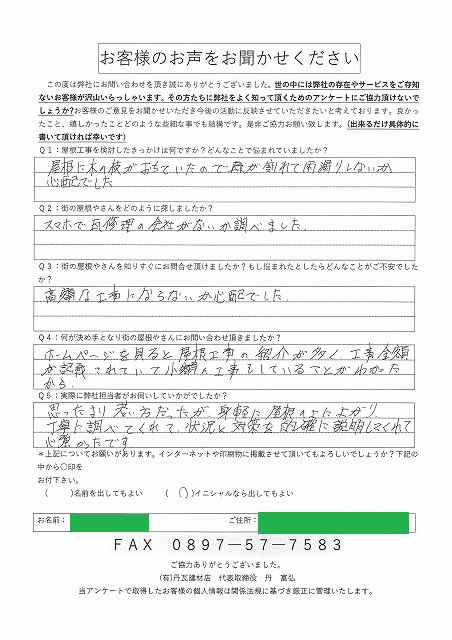 お客様のお声をお聞かせください
この度は弊社にお問い合わせを頂き誠にありがとうございました。世の中には弊社の存在やサービスをご存知
ないお客様が沢山いらっしゃいます。その方たちに弊社をよく知って頂くためのアンケートにご協力頂けないで
しょうか?お客様のご意見をお聞かせいただき今後の活動に反映させていただきたいと考えております。良かっ
たこと、嬉しかったことどのような些細な事でも結構です。是非ご協力お願い致します。(出来るだけ具体的に
書いて頂ければ幸いです)
Q1:屋根工事を検討したきっかけは何ですか?どんなことで悩まれていましたか?
屋根に木の枝がおちていたので瓦が割れて雨漏りしないか
心配でした
Q2:街の屋根やさんをどのように探しましたか?
スマホで瓦修理の会社がないか調べました.
Q3:街の屋根やさんを知りすぐにお問合せ頂けましたか?もし悩まれたとしたらどんなことがご不安でした
か?
高額な工事にならないか心配でした.
Q4:何が決め手となり街の屋根やさんにお問い合わせ頂きましたか?
ホームページを見ると屋根工事の紹介が多く、工事金額
が記載されていて小額の工事もしていることがわかった
から.
Q5:実際に弊社担当者がお伺いしていかがでしたか?
思ったより若い方だったが身軽に屋根の上に上がり
丁寧に調べてくれて、状況と対策を的確に説明してくれて
心強かったです
*上記についてお願いがあります。インターネットや印刷物に掲載させて頂いてもよろしいでしょうか?下記の
中から〇印を
お付下さい。
( )名前を出してもよい ( 〇 )イニシャルなら出してもよい
お名前: ご住所:
FAX 0897-57-7583
ご協力ありがとうございました。
(有)丹瓦建材店 代表取締役 丹 富弘
当アンケートで取得したお客様の個人情報は関係法規に基づき厳正に管理いたします。